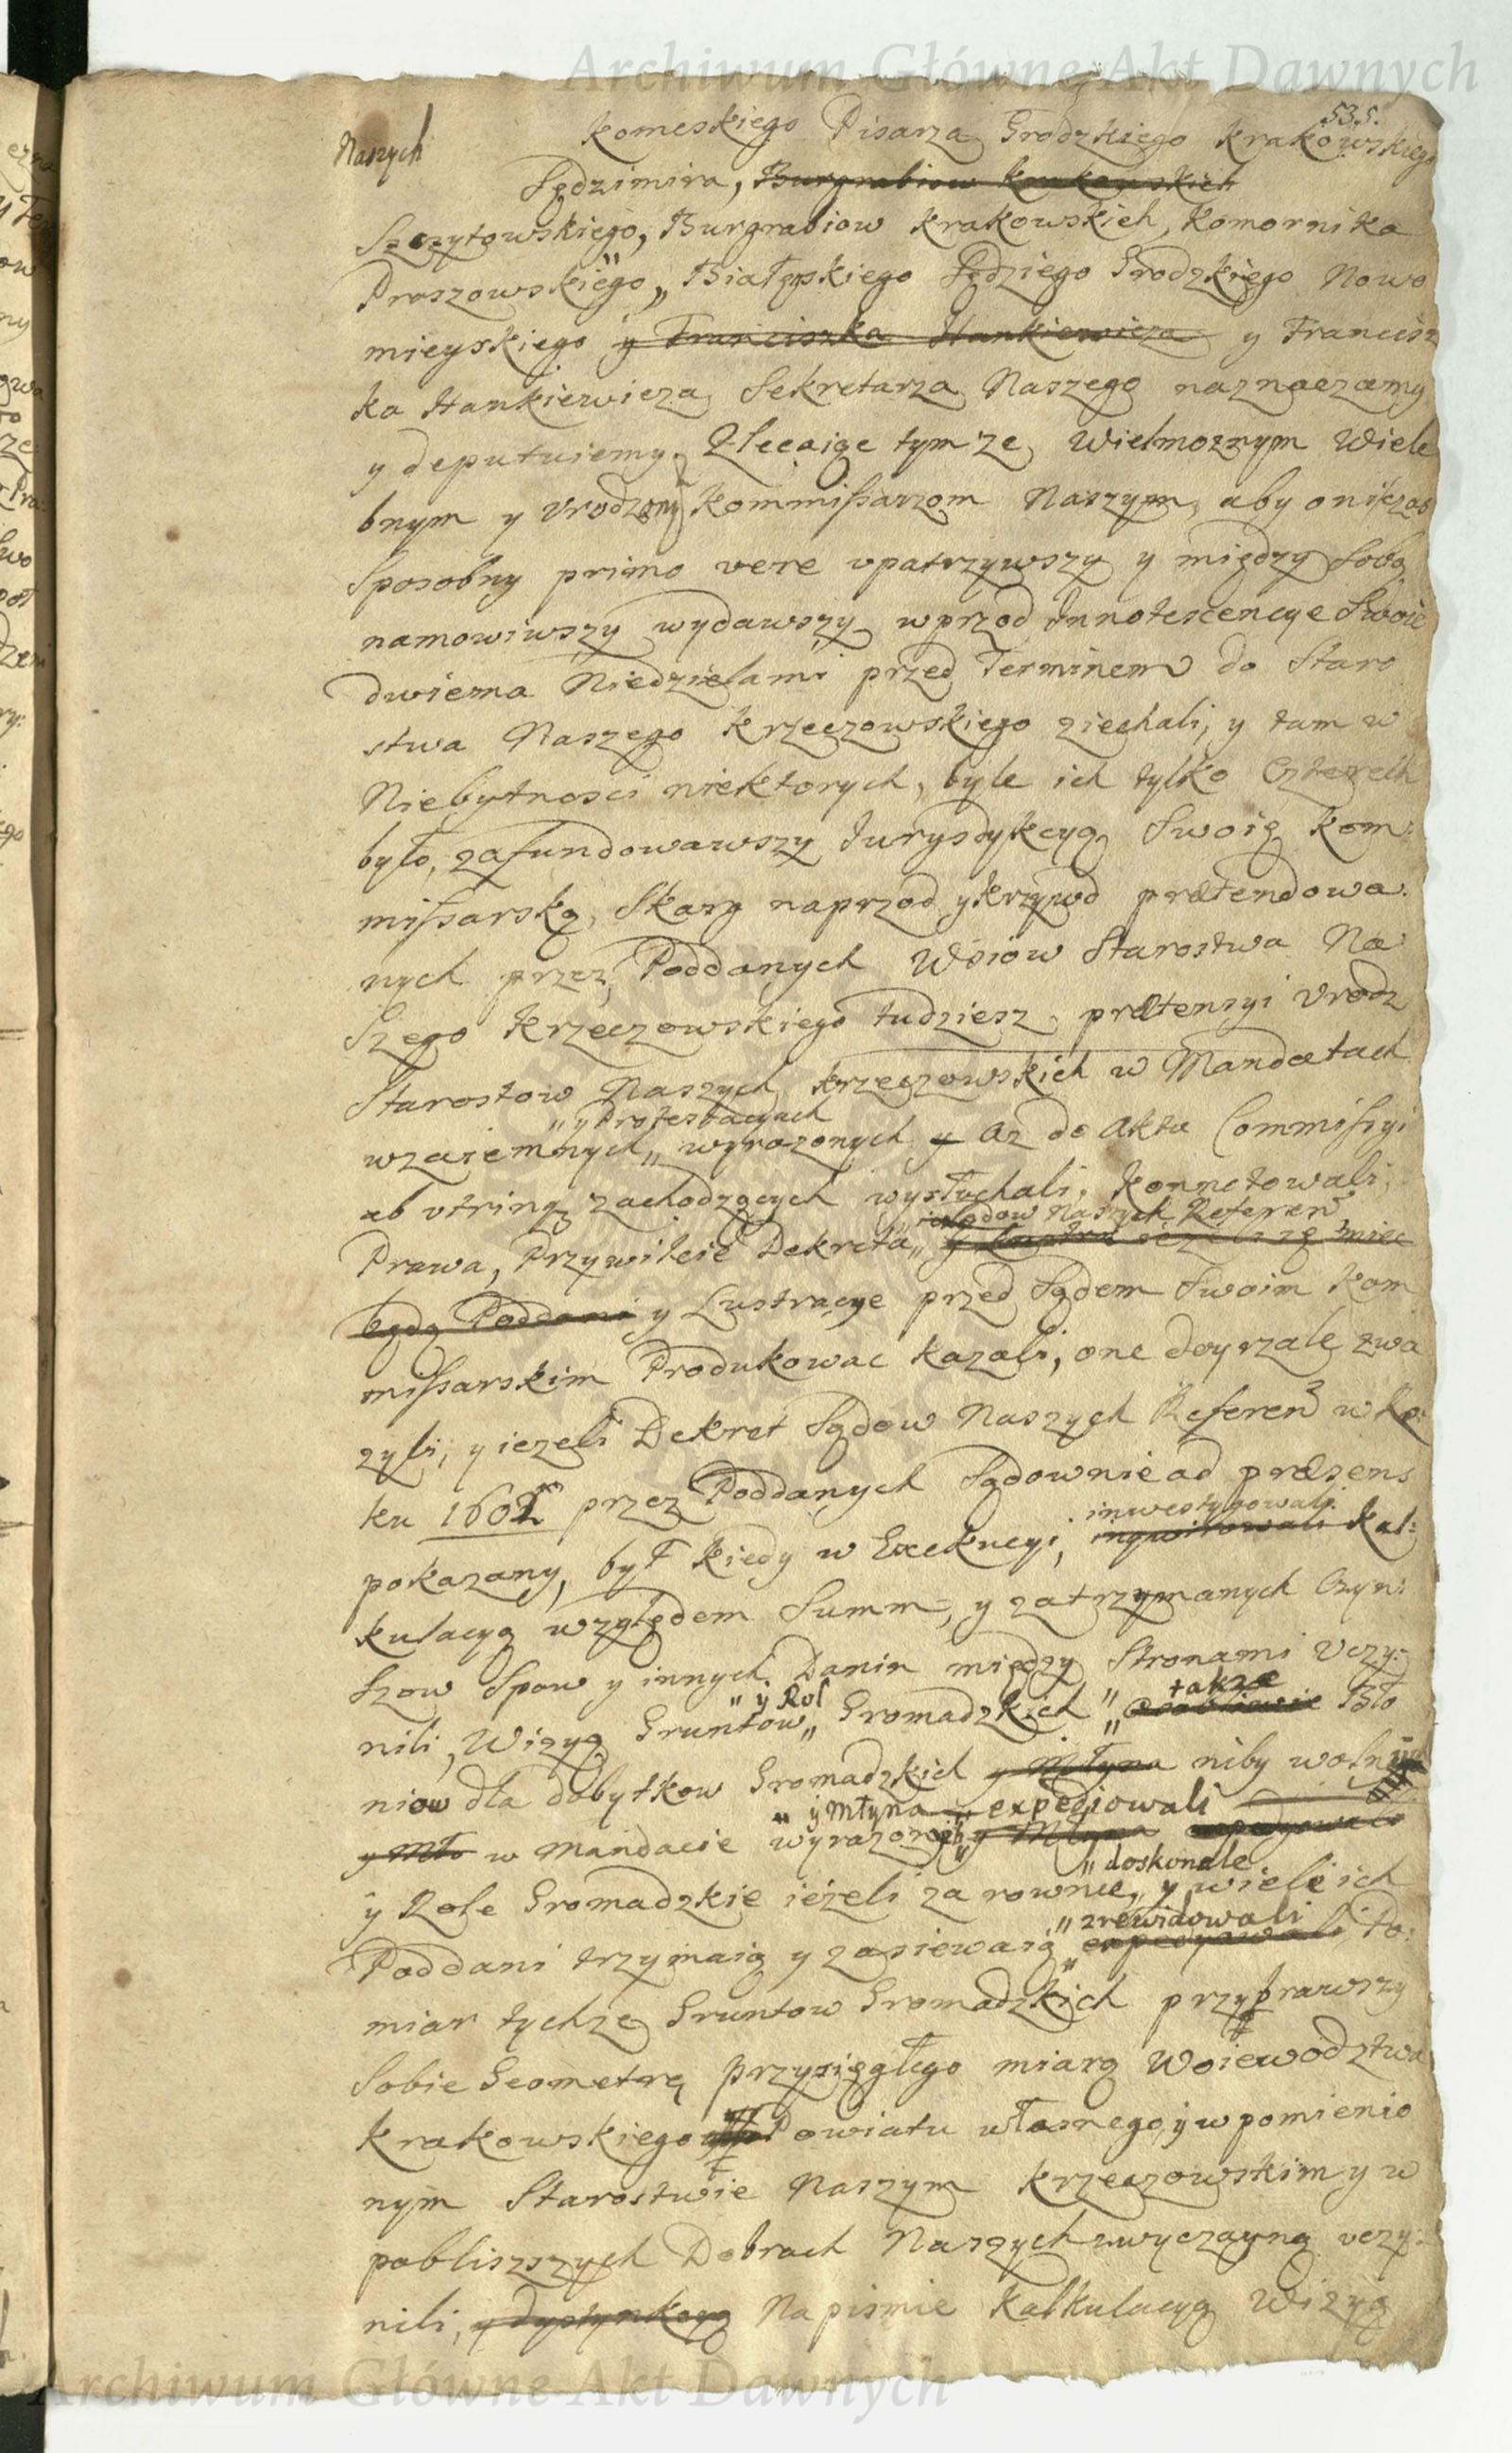 Archiwum Główne Akt Dawnych
535.
Naszych
Komeskiego Pisarza Grodzkiego Krakowskiego
Sędzimira, Burgrabiow Krakowskich
Szczytowskiego, Burgrabiow Krakowskich, Komornika
Proszowskiego, Białęskiego Sędziego Grodzkiego Nowo
mieyskiego y Franciszka Hankiewicza y Francisz
ka Hankiewicza Sekretarza Naszego naznaczamy
y deputuiemy. Zlecaiąc tym ze Wielmoznym Wiele
bnym y Vrodzonym Kommissarzom Naszym, aby oni czas
Sposobny primo vere vpatrzywszy y między Sobą
namowiwszy wydawszy wprzod Innotescencye Swoie
dwiema Niedzielami przed Terminem do Staro
stwa Naszego Krzeczowskiego ziechali, y tam w
Niebytnosci niektorych, byle ich tylko Czterech
było, zafundowawszy Jurysdykcyą Swoią Kom:
missarską, Skarg naprzod y krzywd prætendowa:
nych przez Poddanych Wsiow Starostwa Na
Szego Krzeczowskiego tudziesz prætensyi Vrodz
Starostow Naszych Krzeczowskich w Mandatach
" y Protestacyach
wzaiemnych " wyrazonych y az do Akta Commissyi
ab vtrinq zachodzących wysłuchali, Konnotowali,
Sądow Naszych Referen
Prawa, Przywileie Dekreta " y ieżeli ią miec
będą Poddani y Lustracye przed Sądem Swoim Kom
missarskim Produkowac kazali, one doyrzale zwa
zyli, y iezeli Dekret Sądow Naszych Referen w Ro:
ku 1602 przez Poddanych Sądownie ad præsens
inwestygowali
pokazany, był kiedy w Exekucyi, inqwirowali Kal:
kulacyą względem Summ, y zatrzymanych Czyn:
Szow Spow y innych Danin między Stronami Vczy:
" y Rol
takze
nili, Wizyą Gruntow " Gromadzkich " osobliwie Bło
niow dla dobytkow Gromadzkich y Młyna niby wolny
" y Młyna " expedyowali
y Mło w Mandacie wyrazonych " y Młyna expedyowali
" doskonale
y Role Gromadzkie ieżeli za rowne, y wiele ich
" zrewidowali
Poddani trzymaią y zasiewaią " expedyowali, Po:
miar tychże Gruntow Gromadzkich przybrawszy
Sobie Geometrę przysięgłego miarą Woiewodztwa
Krakowskiego Powiatu własnego, y w pomienio
nym Starostwie Naszym Krzeczowskim y w
pobliszszych Dobrach Naszych zwyczayną vczy:
nili, y dystynkcyą Na pismie Kalkulacyą Wizyą
Archiwum Główne Akt Dawnych